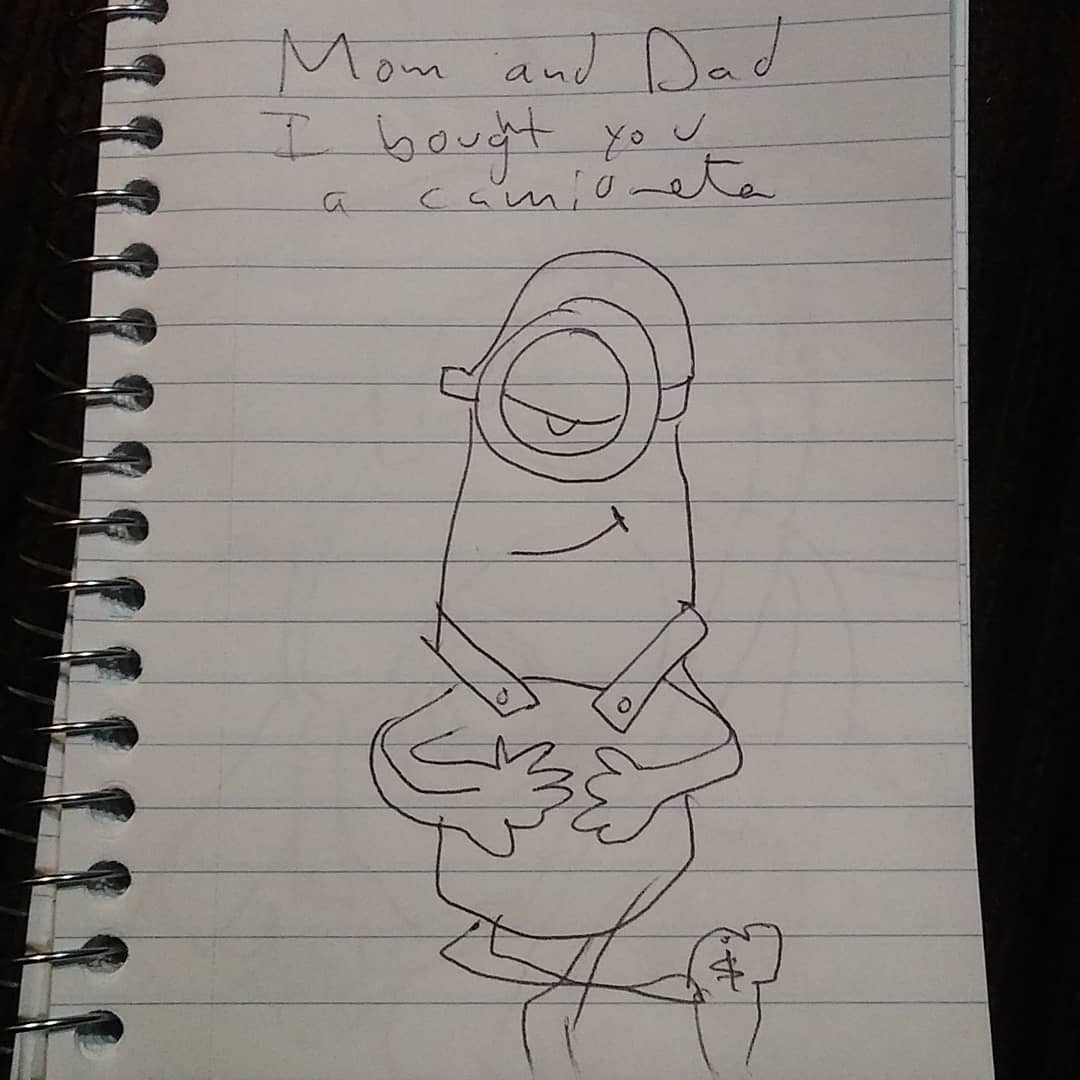 Mom and Dad
I bought you
a camioneta